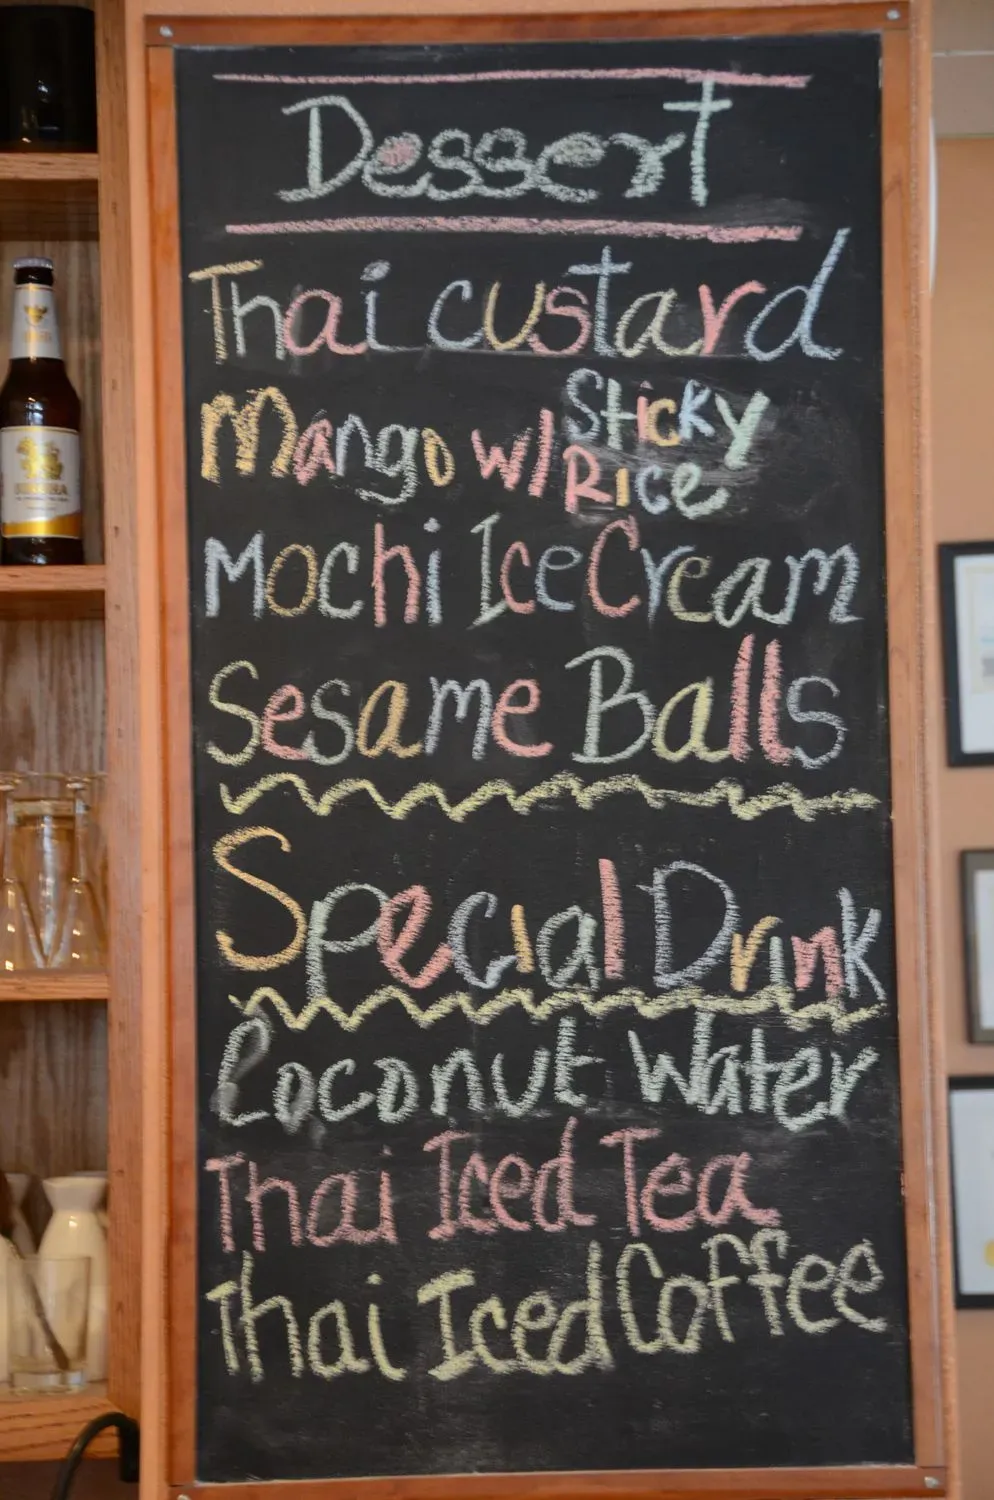 Dessert
Thai custard
Mango w/ Sticky
Rice
Mochi Ice Cream
Sesame Balls
Special Drink
Coconut Water
Thai Iced Tea
Thai Iced Coffee
SINGHA